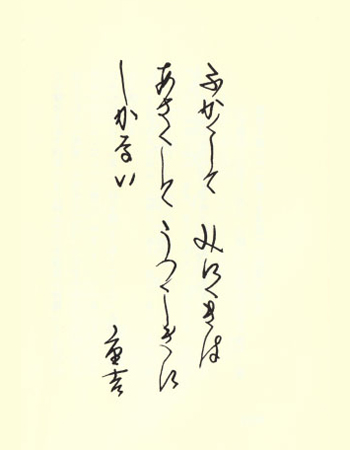 ふかくして みにくきは
あさくして うつくしきに
しかない
重吉